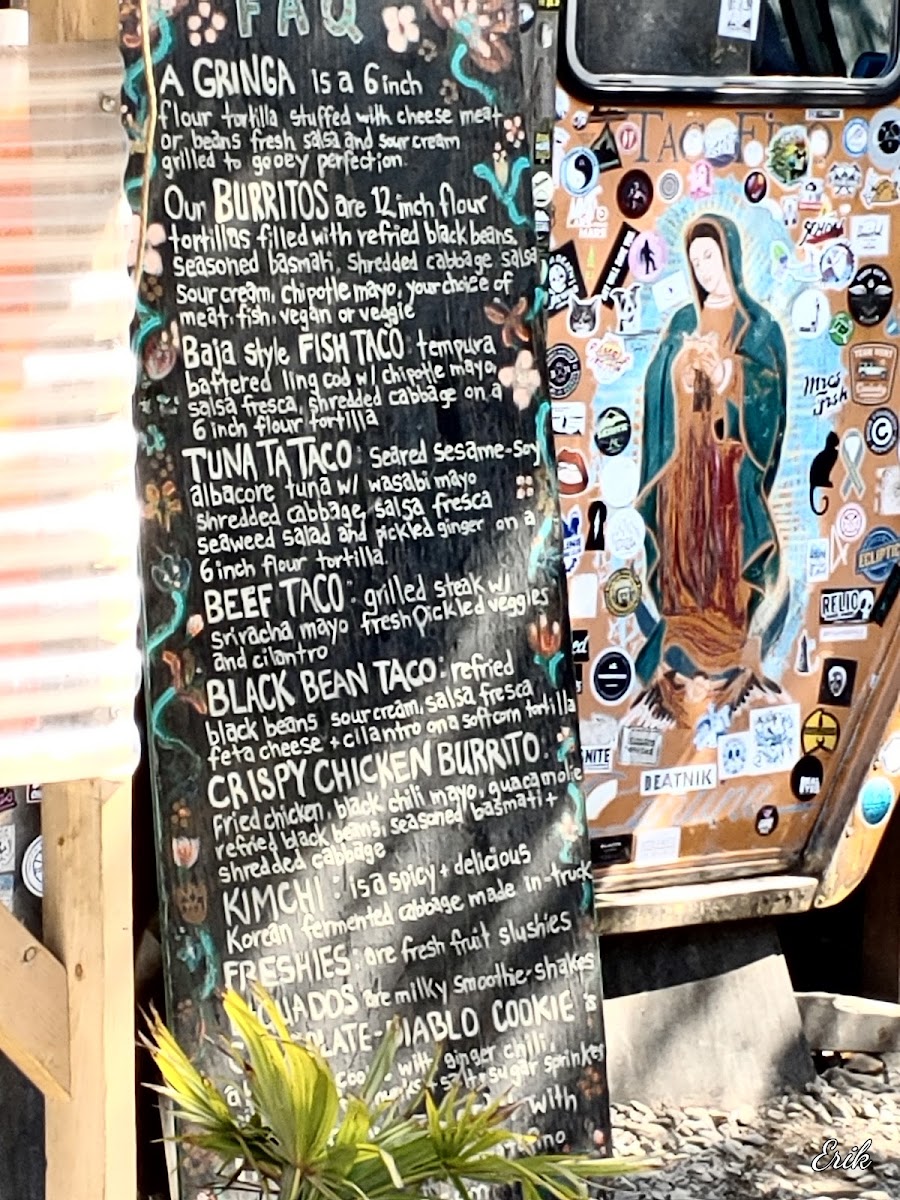 FAQ
A GRINGA is a 6 inch
flour tortilla stuffed with cheese meat
or beans fresh salsa and sour cream
grilled to gooey perfection.
Our BURRITOS are 12 inch flour
tortillas filled with refried black beans,
seasoned basmati, shredded cabbage salsa
sour cream, chipotle mayo, your choice of
meat, fish, vegan or veggie
Baja style FISH TACO: tempura
battered ling cod w/ chipotle mayo,
salsa fresca, shredded cabbage on a
6 inch flour tortilla
TUNA TA TACO: seared sesame-soy
albacore tuna w/ wasabi mayo
shredded cabbage, salsa fresca
seaweed salad and pickled ginger on a
6 inch flour tortilla.
BEEF TACO: grilled steak w/
sriracha mayo fresh pickled veggies
and cilantro
BLACK BEAN TACO: refried
black beans sour cream, salsa, fresca
feta cheese + cilantro on a soft corn tortilla
CRISPY CHICKEN BURRITO:
fried chicken, black chili mayo, guacamolie
refried black beans, seasoned basmati +
shredded cabbage
KIMCHI: is a spicy + delicious
Korean fermented cabbage made in-truck
FRESHIES: are fresh fruit slushies
are milky smoothie-shakes
DIABLO COOKIE is
with ginger chili,
salt + sugar sprinkes
with
TACO
BEATNIK
RELIC
ECLIPTIC
Erik